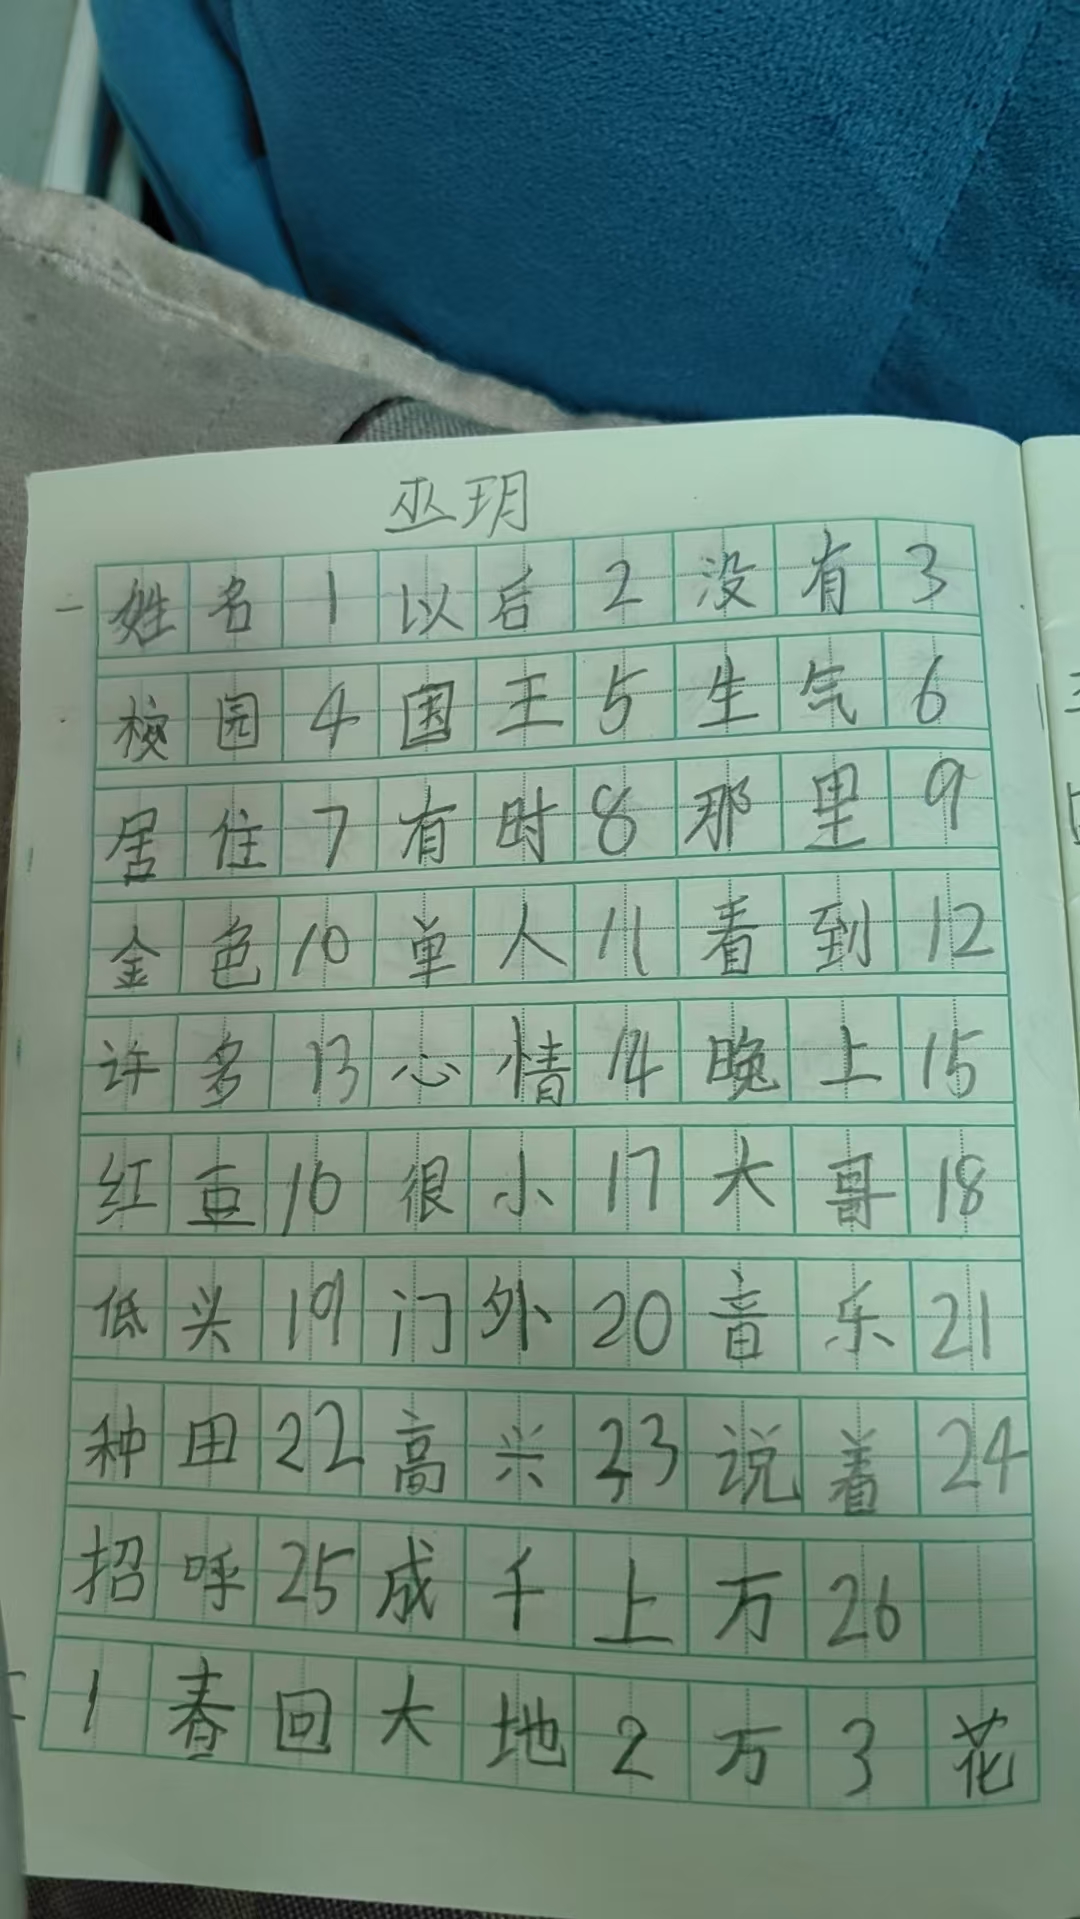 巫玥
一 姓名1以后2没有3
校园4国王5生气6
居住7有时8那里9
金色10单人11看到12
许多13心情14晚上15
红豆16很小17大哥18
低头19门外20音乐21
种田22高兴23说着24
招呼25成千上万26
二 1春回大地2万3花